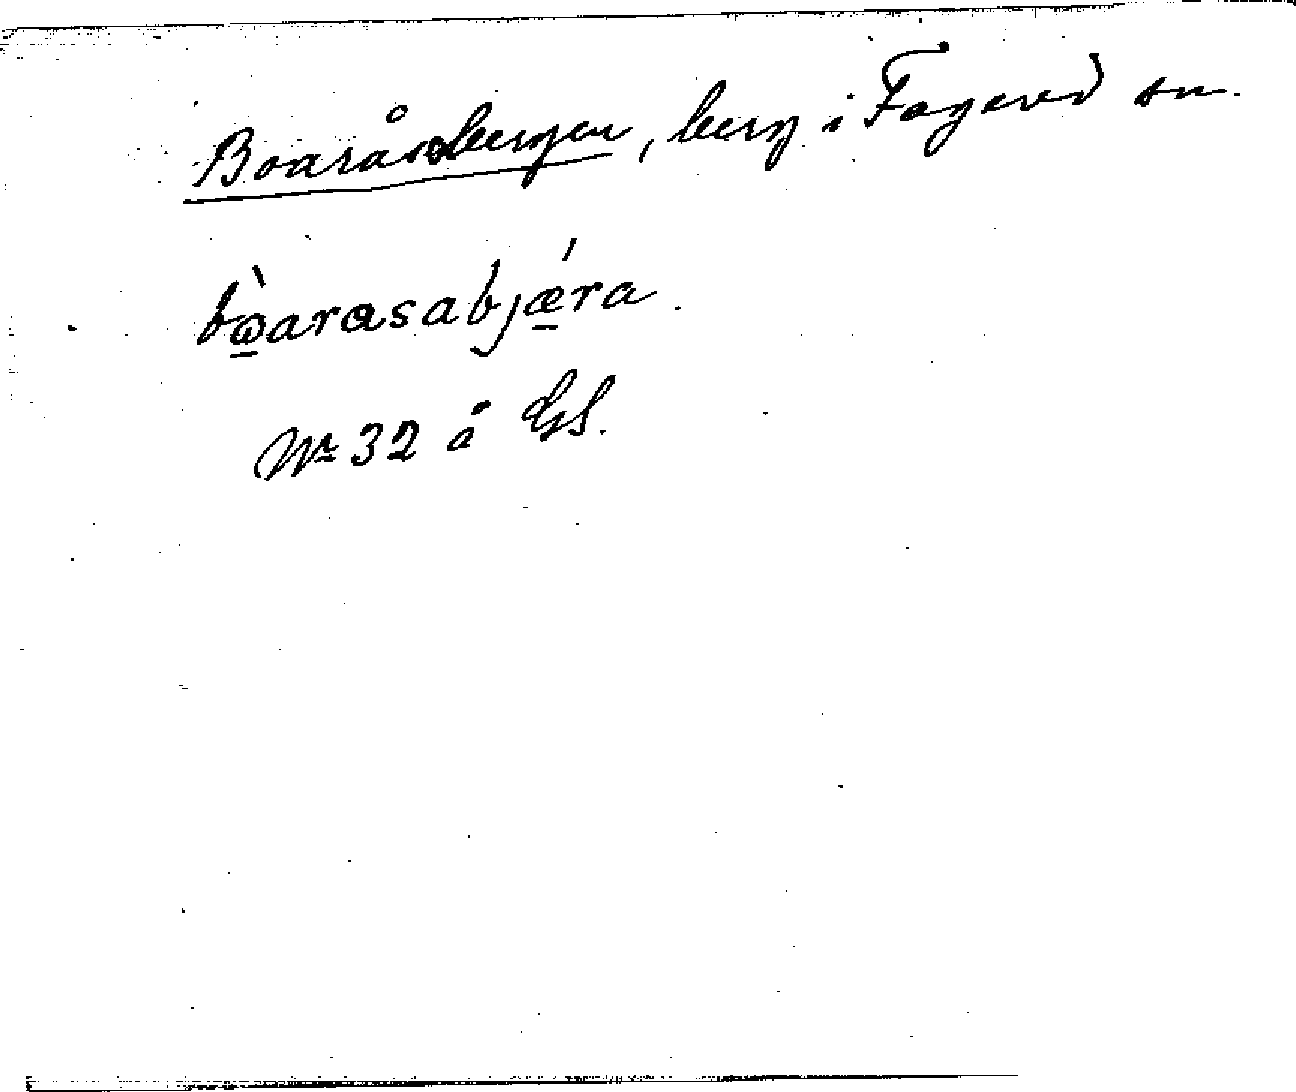 Boaråsbergen, berg i Fagered sn.
bò̱arasabjǽ̱ra.
Nr 32 å GS.